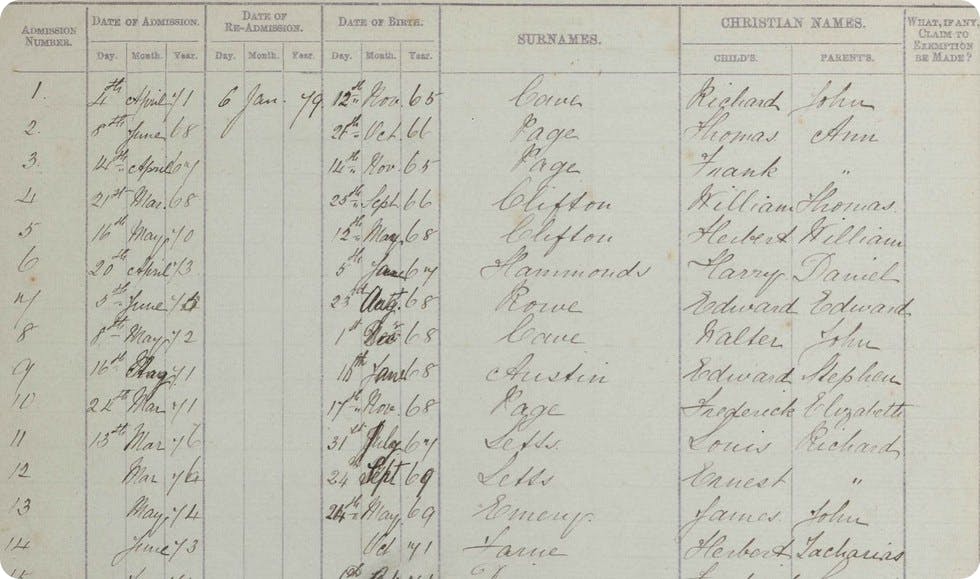 ADMISSION NUMBER. DATE OF ADMISSION. DATE OF RE-ADMISSION. DATE OF BIRTH. SURNAMES. CHRISTIAN NAMES. WHAT, IF ANY, CLAIM TO EXEMPTION BE MADE?
Day. Month. Year. Day. Month. Year. Day. Month. Year. CHILD'S. PARENT'S.
1. 4th April 71 6 Jan. 79 12th Nov. 65 Cave Richard John
2. 8th June 68 Oct. 66 Page Thomas Ann
3. 14th April 67 14th Nov. 65 Page Frank "
4 21st Mar. 68 25th Sept 66 Clifton William Thomas.
5 16th May 70 12th May 68 Clifton Herbert William
6 20th April 73 5th June 67 Hammonds Harry Daniel
7 5th June 23rd Aug. 68 Rowe Edward Edward
8 8th May 72 1st Dec 68 Cave Walter John
9 16th 71 68 Austin Edward Stephen
10 Mar 71 17th Nov. 68 Page Frederick Elizabeth
11 13th Mar 76 31st July 67 Letts Louis Richard
12 Mar 24 Sept 69 Letts Ernest "
13 May 74 May 69 Emery James John
14 June 73 Oct 71 Herbert Zacharias